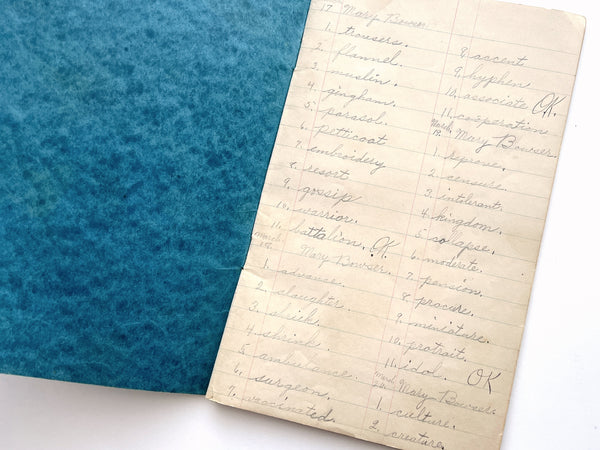 17 Mary Bowser
1. trousers.
2. flannel.
3. muslin.
4. gingham.
5. parasol.
6. petticoat
7. embroidery
8. resort
9. gossip
10. warrior.
11. battalion. OK
March
18. Mary Bowser.
1. advance.
2. slaughter.
3. shriek.
4. shrink.
5. ambulance.
6. surgeon.
7. vaccinated.
8. accent.
9. hyphen
10. associate OK.
11. coöperation
March
19. Mary Bowser
1. reprove.
2. censure.
3. intolerant.
4. kingdom.
5. collapse.
6. moderate.
7. pension.
8. procure.
9. miniature.
10. protrait.
11. idol. OK
March
20. Mary Bowser.
1. culture.
2. creature.